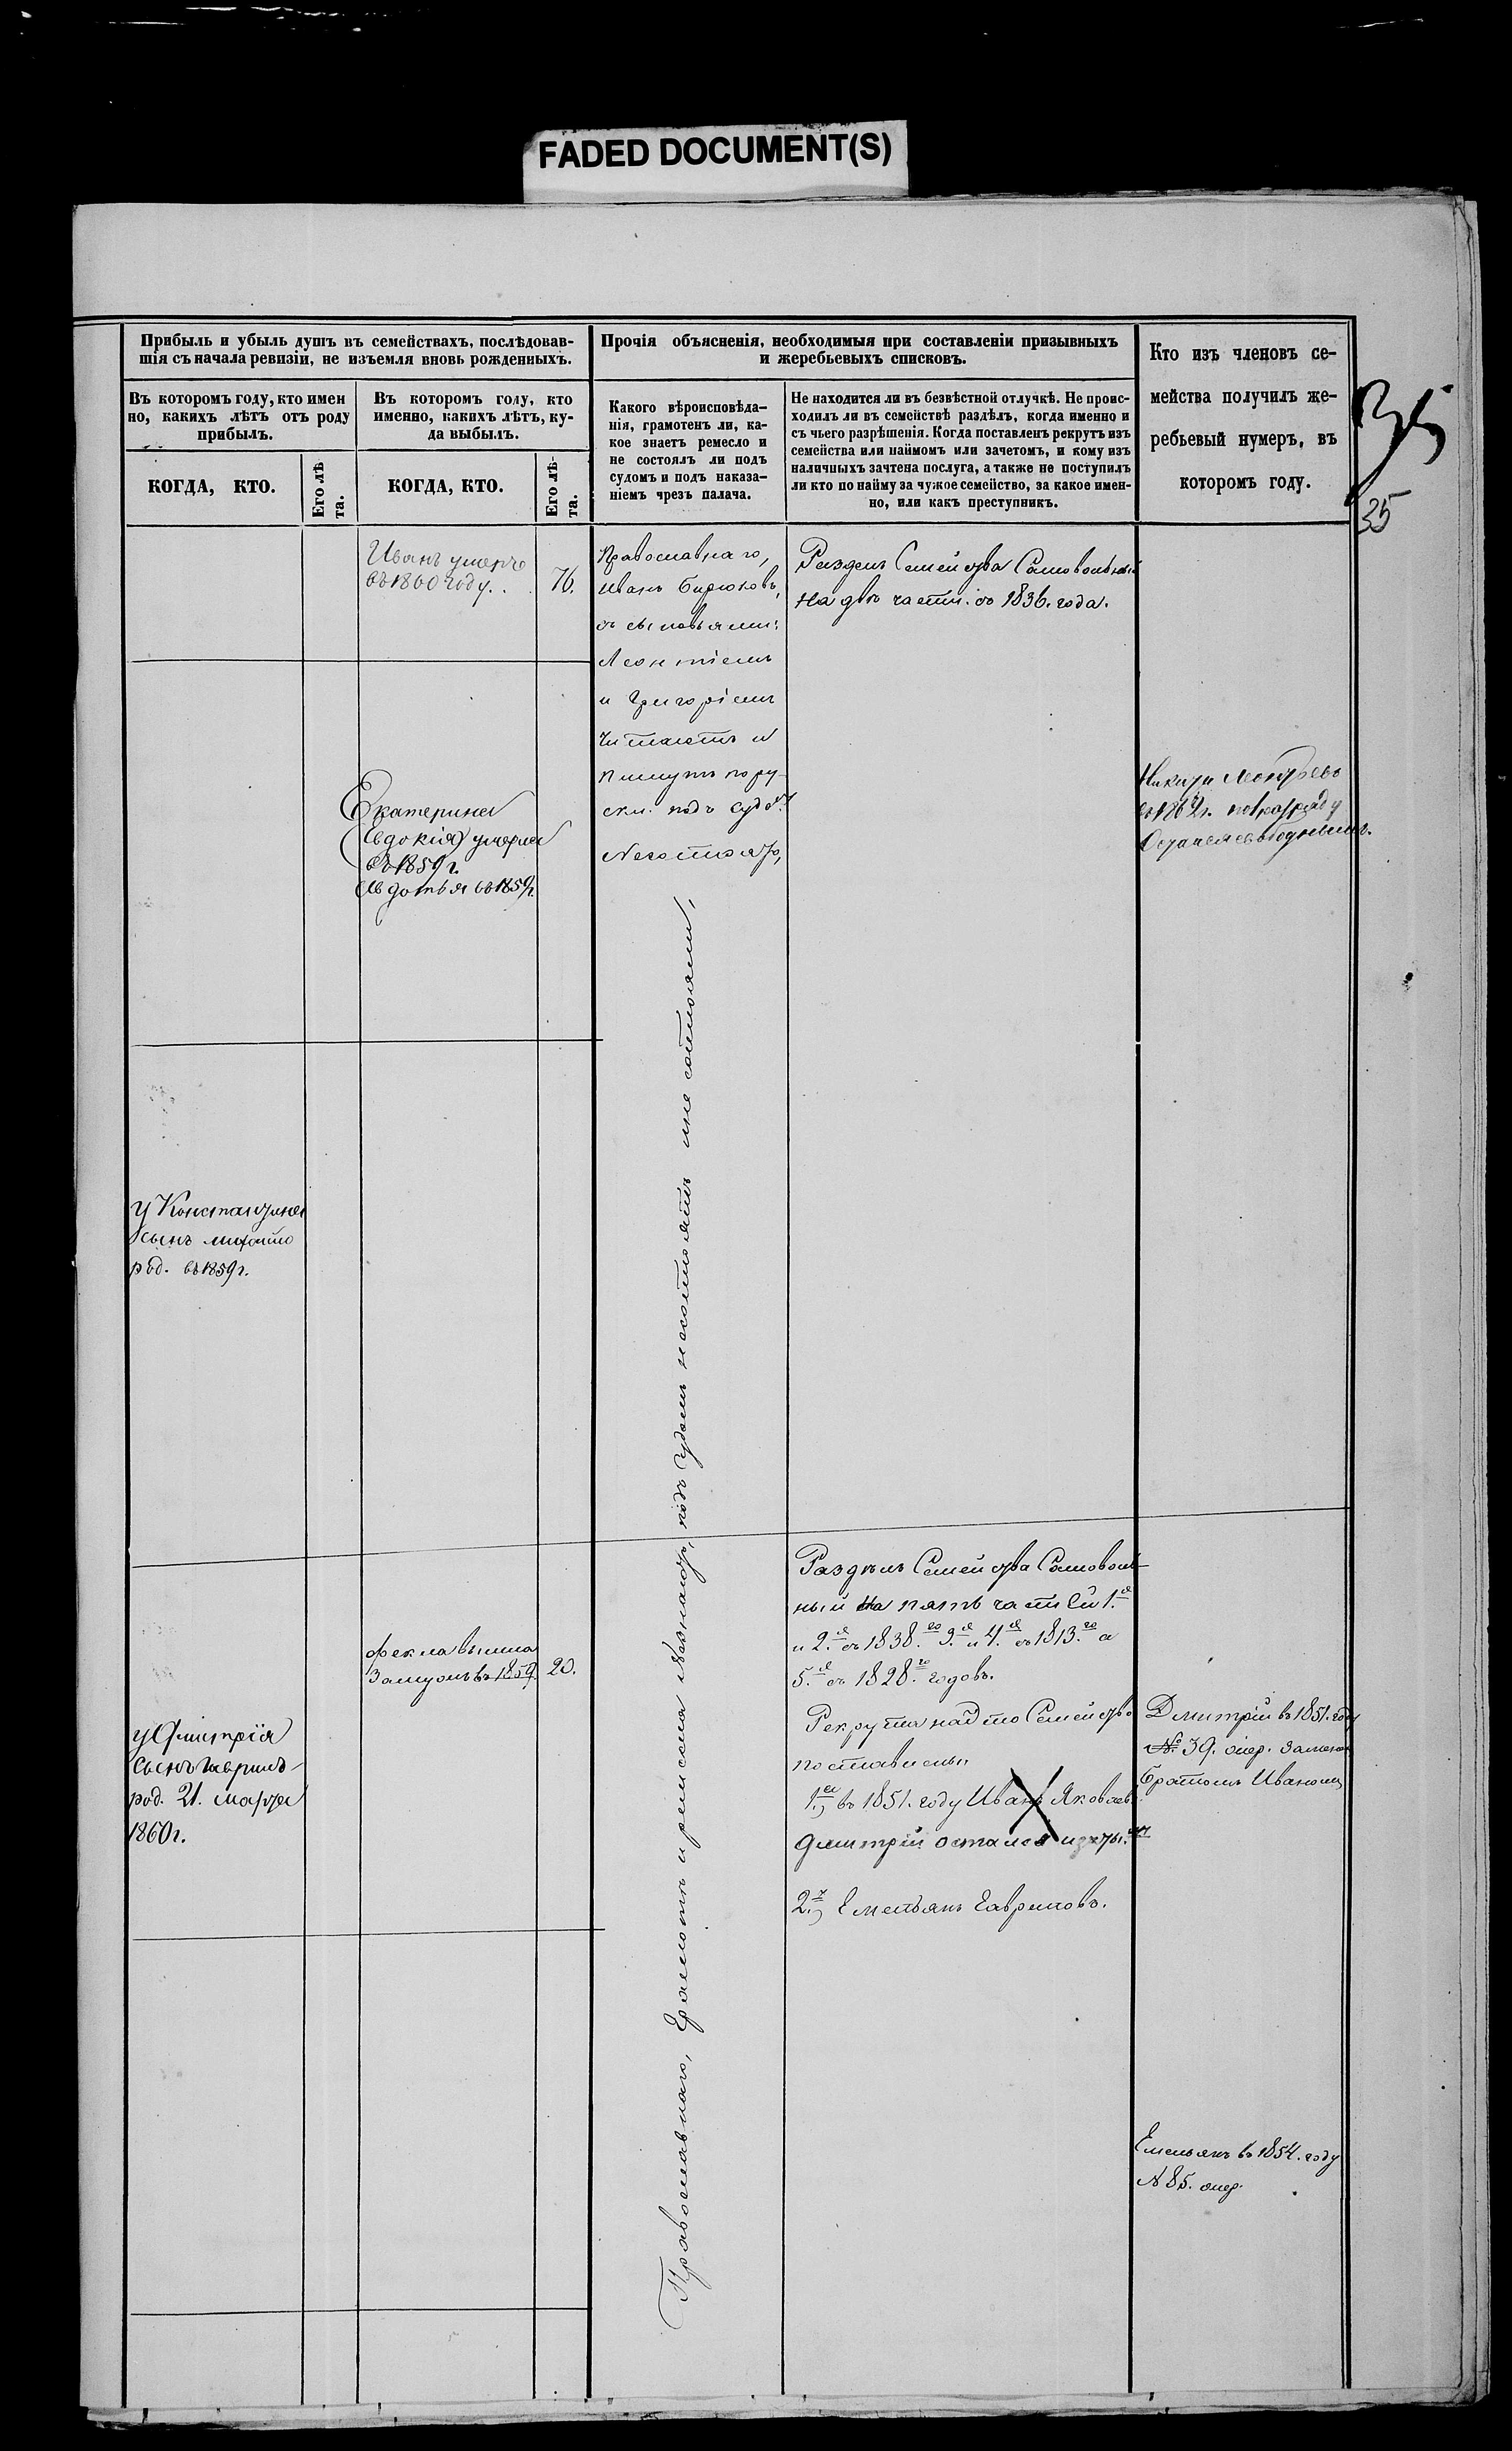 FADED DOCUMENT(S)
Прибыль и убыль душъ въ семействахъ, послѣдовав-
шія съ начала ревизіи, не изъемля вновь рожденныхъ.
Прочія объясненія, необходимыя при составленіи призывныхъ
и жеребьевыхъ списковъ.
Кто изъ членовъ се-
мейства получилъ же-
ребьевый нумеръ, въ
которомъ году.
35
35
Въ которомъ году, кто имен
но, какихъ лѣтъ отъ роду
прибылъ.
Въ которомъ году, кто
именно, какихъ лѣтъ, ку-
да выбылъ.
Какого вѣроисповѣда-
нія, грамотенъ ли, ка-
кое знаетъ ремесло и
не состоялъ ли подъ
судомъ и подъ наказа-
ніемъ чрезъ палача.
Не находится ли въ безвѣстной отлучкѣ. Не проис-
ходилъ ли въ семействѣ раздѣлъ, когда именно и
съ чьего разрѣшенія. Когда поставленъ рекрутъ изъ
семейства или наймомъ или зачетомъ, и кому изъ
наличныхъ зачтена послуга, а также не поступилъ
ли кто по найму за чужое семейство, за какое имен-
но, или какъ преступникъ.
КОГДА, КТО.
Его лѣ
та.
КОГДА, КТО.
Его лѣ-
та.
Иванъ умеръ
въ 1860 году.
76.
Православнаго,
Иванъ Бирюковъ,
съ сыновьями:
Леонтіемъ
и Григоріемъ
Читаютъ и
пишутъ по ру-
ски. подъ судом
Несостоятъ,
Раздѣлъ Семейства Самовольный
На двѣ части. съ 1836. года.
Екатерина
(Евдокія) умерла
въ 1859 г.
Авдотья въ 1859 г.
Никита Леонтьевъ
въ 186 г. по
Остался свободнымъ.
У Константина
сынъ
род. въ 1859 г.
Православнаго, Грамотѣ и ремесла Незнаютъ, подъ Судомъ несостоятъ и не состояли,
Раздѣлъ Семейства Самоволь-
ный На пять частей 1.я
и 2.я съ 1838.го 3.я и 4.я съ 1813.го а
5.я съ 1828.го годовъ.
Фекла вышла
Замужъ въ 1859.
20.
У Дмитрія
Сынъ Гаврилъ
род. 21. Марта
1860 г.
Рекрута Семейство
поставили
1.) въ 1851. году Иванъ Яковлевъ
Дмитрій остался
2.) Емельянъ Гавриловъ.
Дмитрій въ 1851. году
№ 39. очер. Замененъ
братомъ Иваномъ
Емельянъ въ 1854. году
№ 85. очер.